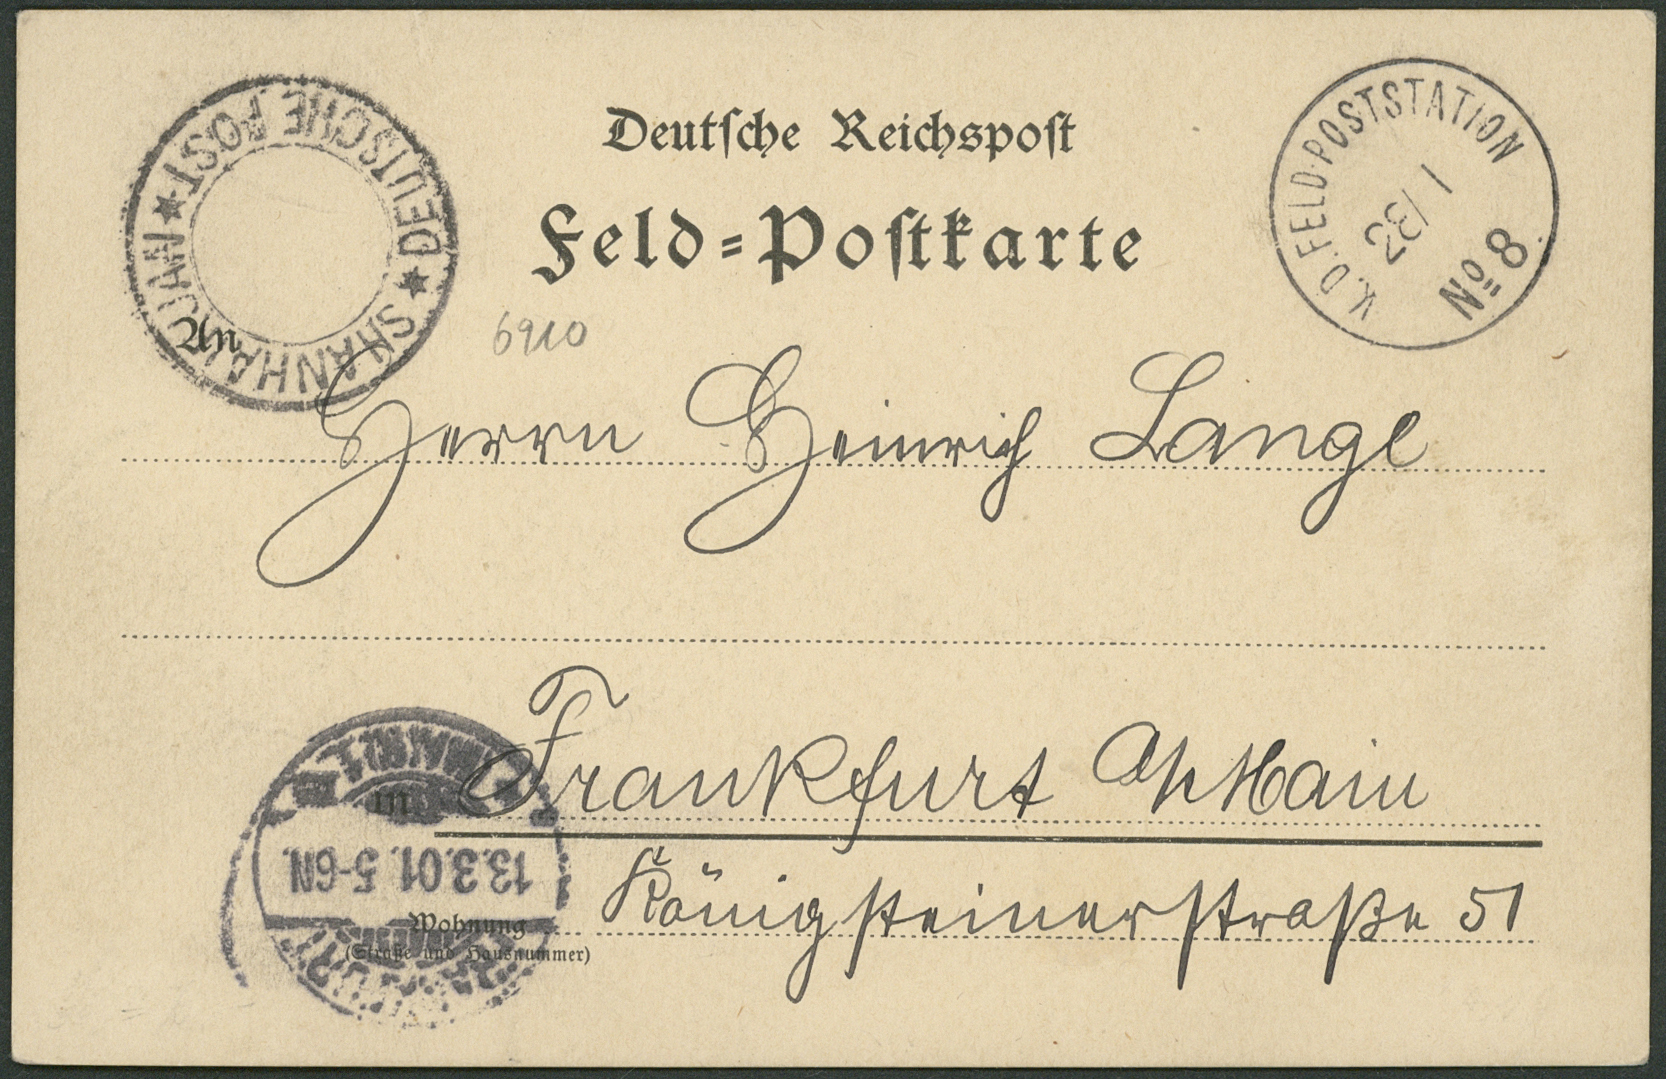 Deutsche Reichspost
Feld=Postkarte
DEUTSCHE POST
SHANHAIKWAN
K.D. FELD-POSTSTATION
28/1
No 8
An
6910
Herrn Heinrich Lange
in
Frankfurt a/Main
13.3.01. 5-6N.
Wohnung
(Straße und Hausnummer)
Königsteinerstraße 51